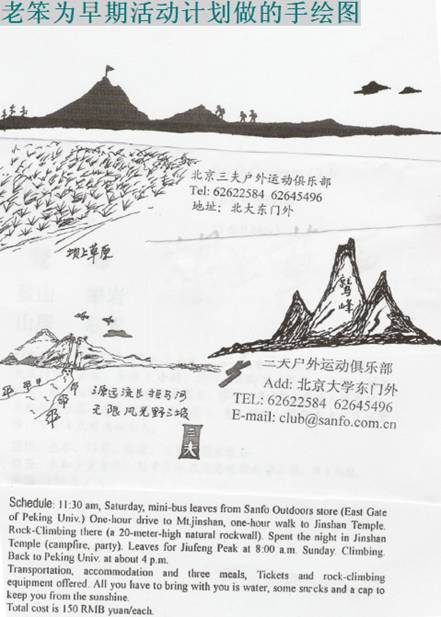 老笨为早期活动计划做的手绘图
北京三夫户外运动俱乐部
Tel: 62622584 62645496
地址：北大东门外
坝上草原
鹫峰
三夫户外运动俱乐部
Add: 北京大学东门外
TEL: 62622584 62645496
E-mail: club@sanfo.com.cn
源远流长拒马河
无限风光野三坡
三夫
Schedule: 11:30 am, Saturday, mini-bus leaves from Sanfo Outdoors store (East Gate
of Peking Univ.) One-hour drive to Mt.jinshan, one-hour walk to Jinshan Temple.
Rock-Climbing there (a 20-meter-high natural rockwall). Spent the night in Jinshan
Temple (campfire, party). Leaves for Jiufeng Peak at 8:00 a.m. Sunday. Climbing.
Back to Peking Univ. at about 4 p.m.
Transportation, accommodation and three meals, Tickets and rock-climbing
equipment offered. All you have to bring with you is water, some snacks and a cap to
keep you from the sunshine.
Total cost is 150 RMB yuan/each.